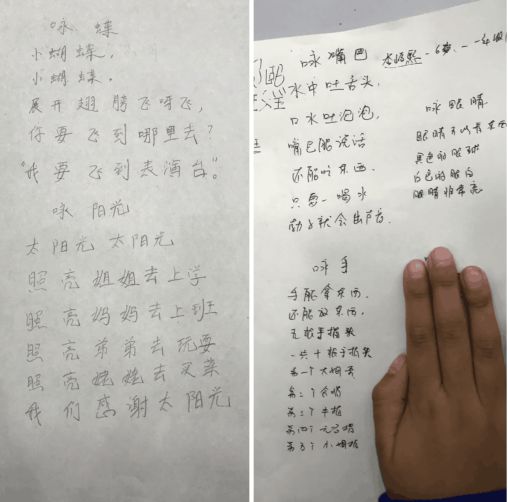 咏 蝶
小蝴蝶,
小蝴蝶。
展开翅膀飞呀飞,
你要飞到哪里去?
"我要飞到表演台。"
咏 阳光
太阳光 太阳光
照亮姐姐去上学
照亮妈妈去上班
照亮弟弟去玩耍
照亮姥姥去买菜
我们感谢太阳光
咏嘴巴
水中吐舌头,
口水吐泡泡,
嘴巴能说话
还能吃东西,
只要一喝水
肚子就会出声音
咏眼睛
眼睛可以看东西
黑色的眼球
白色的眼白
眼睛非常亮
咏手
手能拿东西,
还能放东西,
五枚手指头
一共十根手指头
第一个大拇哥
第二个食指
第三个中指
第四个无名指
第五个小拇指